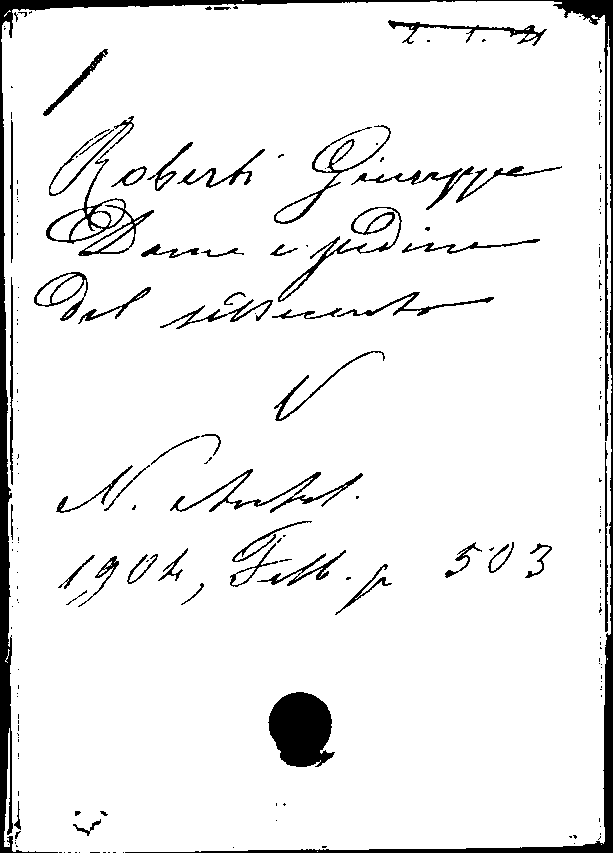 2. 1. 21
Roberti Giuseppe
Dame e pedine
del settecento
V
N. Antol.
1904, Febb. p 503